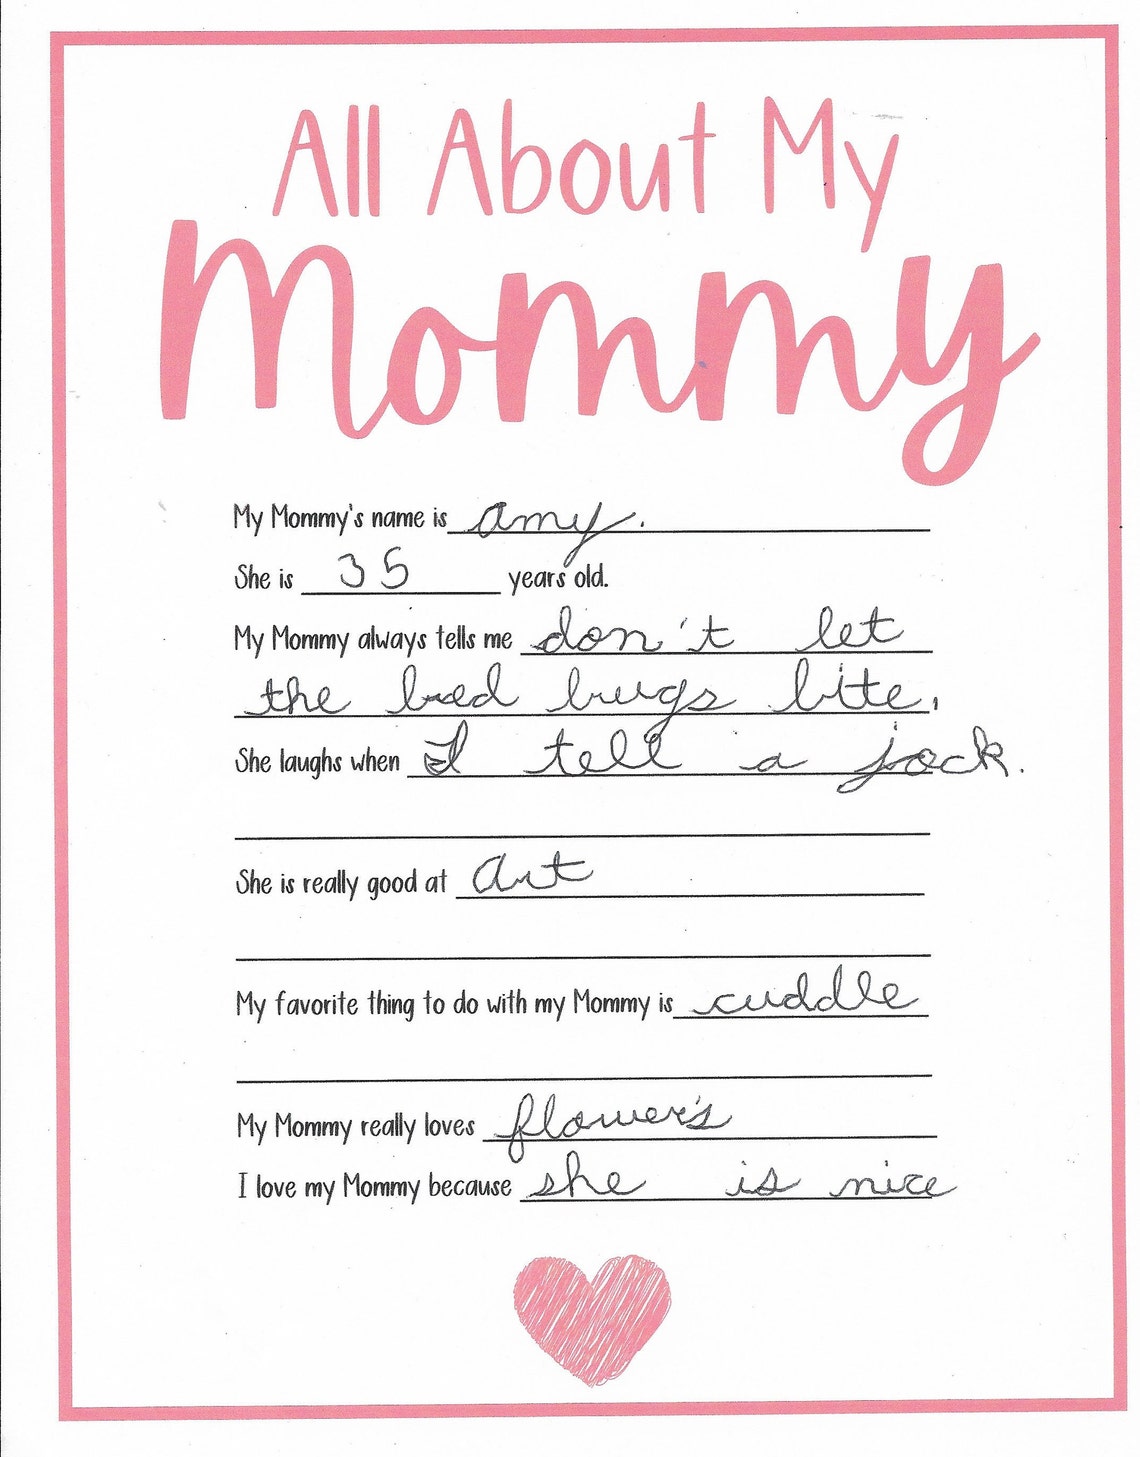 All About My
Mommy
My Mommy's name is amy.
She is 35 years old.
My Mommy always tells me don't let
the bed bugs bite.
She laughs when I tell a jock.
She is really good at art
My favorite thing to do with my Mommy is cuddle
My Mommy really loves flower's
I love my Mommy because she is nice